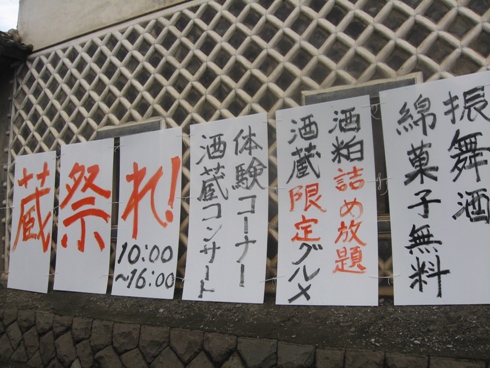 蔵祭れ!
10:00
~16:00
体験コーナー
酒蔵コンサート
酒粕詰め放題
酒蔵限定グルメ
振舞酒
綿菓子無料